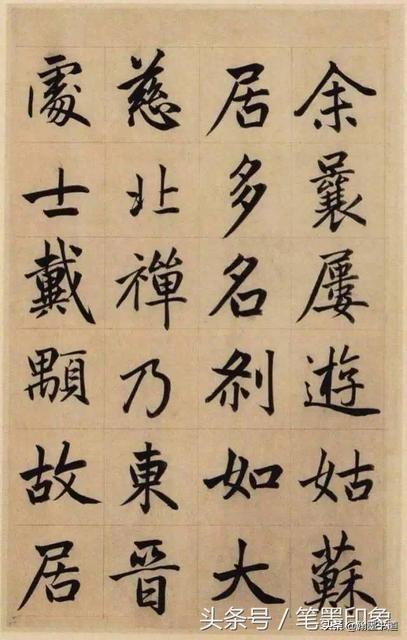 余曩屢遊姑蘇
居多名刹如大
慈北禪乃東晉
處士戴顒故居
头条号／笔墨印象